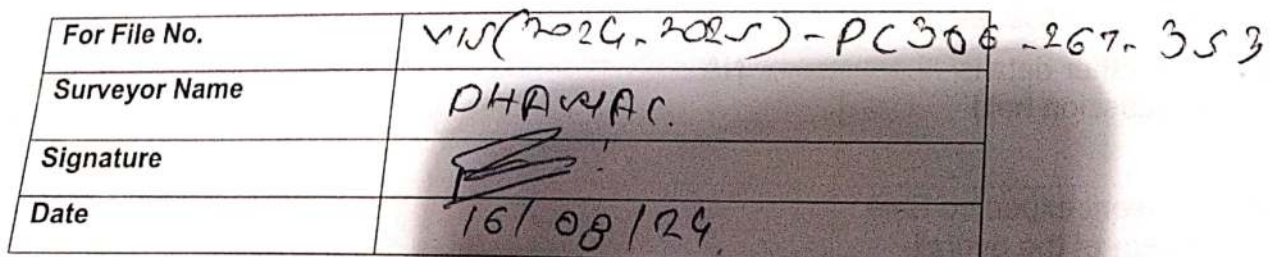 For File No. VIS(2024-2025)-PC306-267-353
Surveyor Name DHAWAL.
Signature
Date 16/08/24.